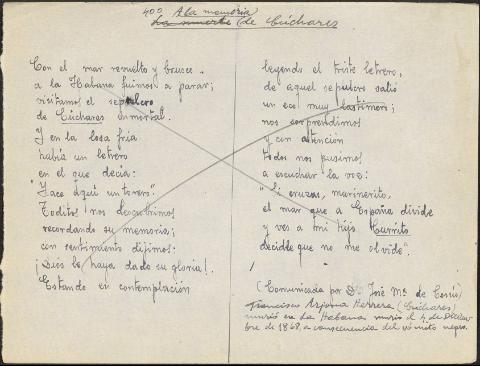 400 A la memoria
La muerte (de Cúchares
Con el mar revuelto y brusco
a la Habana fuimos a parar;
visitamos el sepulcro
de Cúchares inmortal.
Y en la losa fría
había un letrero
en el que decía:
"Yace aquí un torero".
Toditos nos descubrimos
recordando su memoria;
con sentimiento dijimos:
¡Dios le haya dado su gloria!.
Estando en contemplación
leyendo el triste letrero,
de aquel sepulcro salió
un eco muy lastimero;
nos sorprendimos
y con atención
todos nos pusimos
a escuchar la voz:
"Si cruzas, marinerito,
el mar que a España divide
y ves a mi hijo Currito
decidle que no me olvide".
(Comunicada por D. José Mª de Cossío)
Francisco Arjona Herrera (Cúchares)
murió en La Habana murió el 4 de Diciem
bre de 1868, a consecuencia del vómito negro.